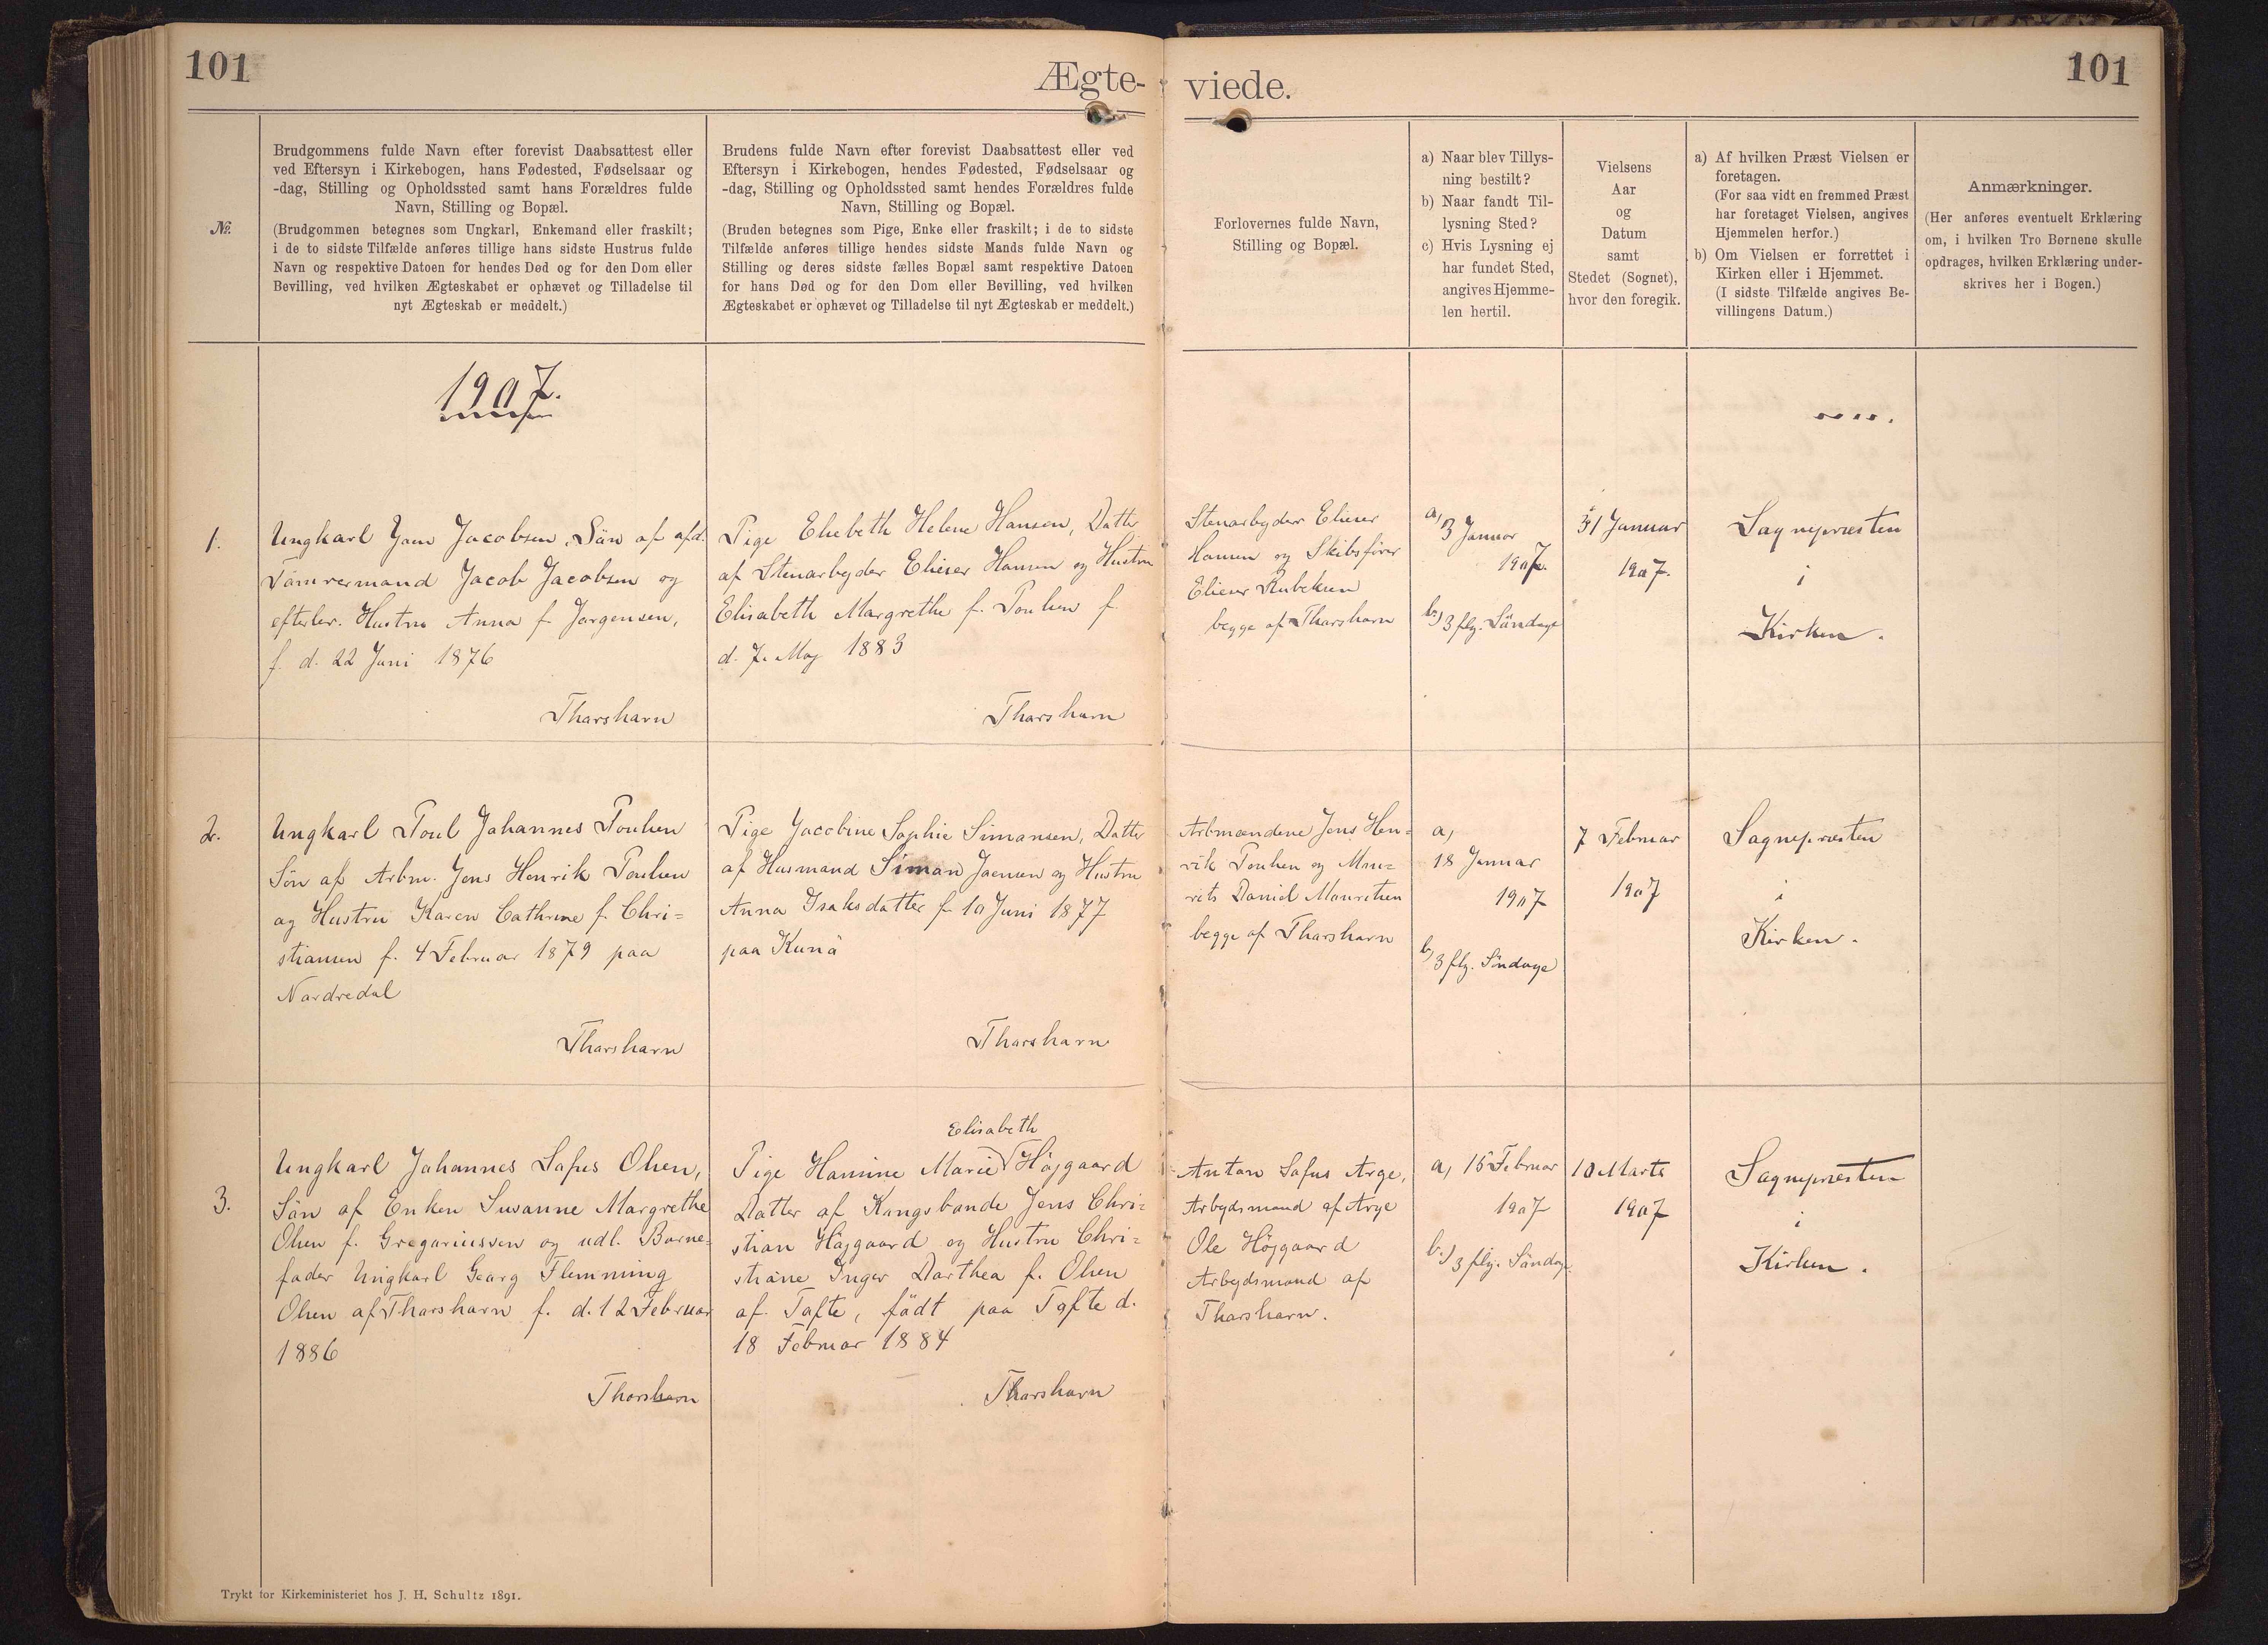 101
Ægte-
viede.
101
№.
Brudgommens fulde Navn efter forevist Daabsattest eller
ved Eftersyn i Kirkebogen, hans Fødested, Fødselsaar og
-dag, Stilling og Opholdssted samt hans Forældres fulde
Navn, Stilling og Bopæl.
(Brudgommen betegnes som Ungkarl, Enkemand eller fraskilt;
i de to sidste Tilfælde anføres tillige hans sidste Hustrus fulde
Navn og respektive Datoen for hendes Død og for den Dom eller
Bevilling, ved hvilken Ægteskabet er ophævet og Tilladelse til
nyt Ægteskab er meddelt.)
Brudens fulde Navn efter forevist Daabsattest eller ved
Eftersyn i Kirkebogen, hendes Fødested, Fødselsaar og
-dag, Stilling og Opholdssted samt hendes Forældres fulde
Navn, Stilling og Bopæl.
(Bruden betegnes som Pige, Enke eller fraskilt; i de to sidste
Tilfælde anføres tillige hendes sidste Mands fulde Navn og
Stilling og deres sidste fælles Bopæl samt respektive Datoen
for hans Død og for den Dom eller Bevilling, ved hvilken
Ægteskabet er ophævet og Tilladelse til nyt Ægteskab er meddelt.)
Forlovernes fulde Navn,
Stilling og Bopæl.
a) Naar blev Tillys-
ning bestilt?
b) Naar fandt Til-
lysning Sted?
c) Hvis Lysning ej
har fundet Sted,
angives Hjemme-
len hertil.
Vielsens
Aar
og
Datum
samt
Stedet (Sognet),
hvor den foregik.
a) Af hvilken Præst Vielsen er
foretagen.
(For saa vidt en fremmed Præst
har foretaget Vielsen, angives
Hjemmelen herfor.)
b) Om Vielsen er forrettet i
Kirken eller i Hjemmet.
(I sidste Tilfælde angives Be-
villingens Datum.)
Anmærkninger.
(Her anføres eventuelt Erklæring
om, i hvilken Tro Børnene skulle
opdrages, hvilken Erklæring under-
skrives her i Bogen.)
1907.
1.
Ungkarl Joen Jacobsen, Sön af afd.
Tömrermand Jacob Jacobsen og
efterlev. Hustru Anna f. Jörgensen,
f. d. 22 Juni 1876
Thorshavn
Pige Elsebeth Helene Hansen, Datter
af Stenarbejder Elieser Hansen og Hustru
Elisabeth Margrethe f. Poulsen f.
d. 7. Maj 1883
Thorshavn
Stenarbejder Elieser
Hansen og Skibsfører
Elieser Rubeksen
begge af Thorshavn
a, 3 Januar
1907.
b) 3 flg. Söndage
31 Januar
1907.
Sognepræsten
i
Kirken.
2.
Ungkarl Poul Johannes Poulsen
Sön af Arbm. Jens Henrik Poulsen
og Hustru Karen Cathrine f. Chri=
stiansen f. 4 Februar 1879 paa
Nordredal
Thorshavn
Pige Jacobine Sophie Simonsen, Datter
af Husmand Simon Joensen og Hustru
Anna Isaksdatter f. 10 Juni 1877
paa Kunö
Thorshavn
Arbmændene Jens Hen=
rik Poulsen og Mou=
rits Daniel Mouritsen
begge af Thorshavn
a,
18 Januar
1907
b) 3 flg. Söndage
7 Februar
1907
Sognepræsten
i
Kirken.
3.
Ungkarl Johannes Sofus Olsen,
Sön af Enken Susanne Margrethe
Olsen f. Gregoriussen og udl. Barne=
fader Ungkarl Georg Flemming
Olsen af Thorshavn f. d. 12 Februar
1886
Thorshavn
Elisabeth
Pige Hansine Marie Höjgaard
Datter af Kongsbonde Jens Chri=
stian Höjgaard og Hustru Chri=
stiane Inger Dorthea f. Olsen
af Tofte, födt paa Tofte d.
18 Februar 1884
Thorshavn
Anton Sofus Arge,
Arbejdsmand af Arge
Ole Höjgaard
Arbejdsmand af
Thorshavn.
a, 15 Februar
1907
b.) 3 flg. Söndage
10 Marts
1907
Sognepræsten
i
Kirken.
Trykt for Kirkeministeriet hos J. H. Schultz 1891.